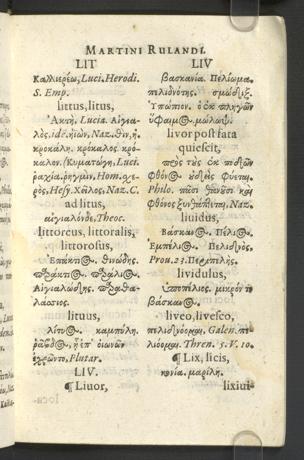 MARTINI RULANDI.
LIT
Καλλιερέω, Luci. Herodi.
S. Emp.
littus, litus,
Ἀκτὴ, Lucia. Αἰγια-
λὸς, id. ἠϊὼν, Naz. θὶν, ἡ.
κροκάλη. κροκαλος. κρό-
καλον. Κυματώγη, Luci.
ῥαχία, ῥηγμὶν, Hom. χε-
ρὸς, Hesy. Χεῖλος, Naz. C.
ad litus,
αἰγιαλόνδε, Theoc.
littoreus, littoralis,
littorosus,
Ἐπάκτι Θινώδης.
Αἰγιαλώδης,
λάσσιος.
lituus,
λίτυ καμπύλη.
οἰωνῶν
ἐχρῶντο, Plutar.
LIV.
¶ Liuor,
LIV
βασκανία. Πελίωμα.
πελιδνότης. σμῶδιξ.
Ὑπώπιον. ἐκ πληγῶν
ὕφαιμ μώλωψ.
livor post fata
quiescit,
πρὸς τοὺς ἐκ ποδῶν
φθόν οὐδεὶς φύεται,
Philo.
φθόνος Naz.
liuidus,
Βάσκαν Πέλι
Ἐμπέλι Πελιδνὸς,
Prou. 23. Περκπελὴς.
lividulus,
ὑποπέλιος. μικρόν τι
βάσκαν
liveo, livesco,
πελιδνόομαι. Galen. πε-
λιόομαι. Thren. 5. V. 10.
¶ Lix, licis,
κονία. μαρίλη.
lixiui-